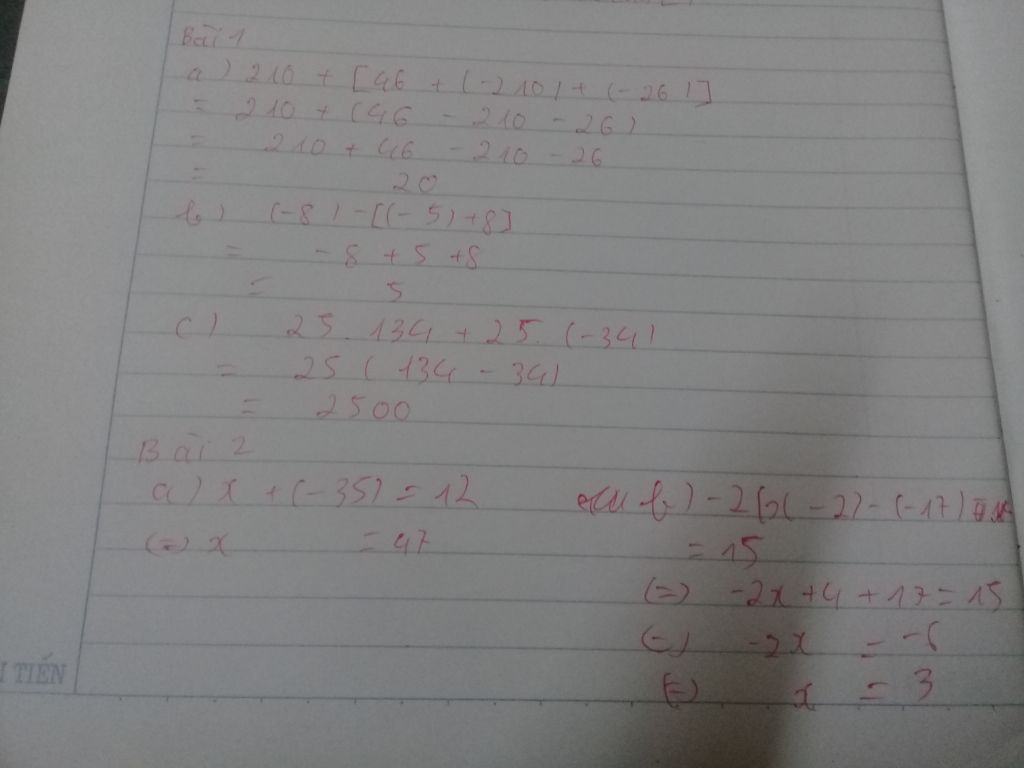 Bài 1
a) 210 + [46 + (-210) + (-26)]
= 210 + (46 - 210 - 26)
= 210 + 46 - 210 - 26
= 20
b) (-8) - [(-5) + 8]
= -8 + 5 + 8
= 5
c) 25. 134 + 25. (-34)
= 25 ( 134 - 34)
= 2500
Bài 2
a) x + (-35) = 12
(=) x = 47
b) - 2(x - 2) - (-17)
= 15
(=) -2x + 4 + 17 = 15
(=) -2x = -6
(=) x = 3
TIẾN